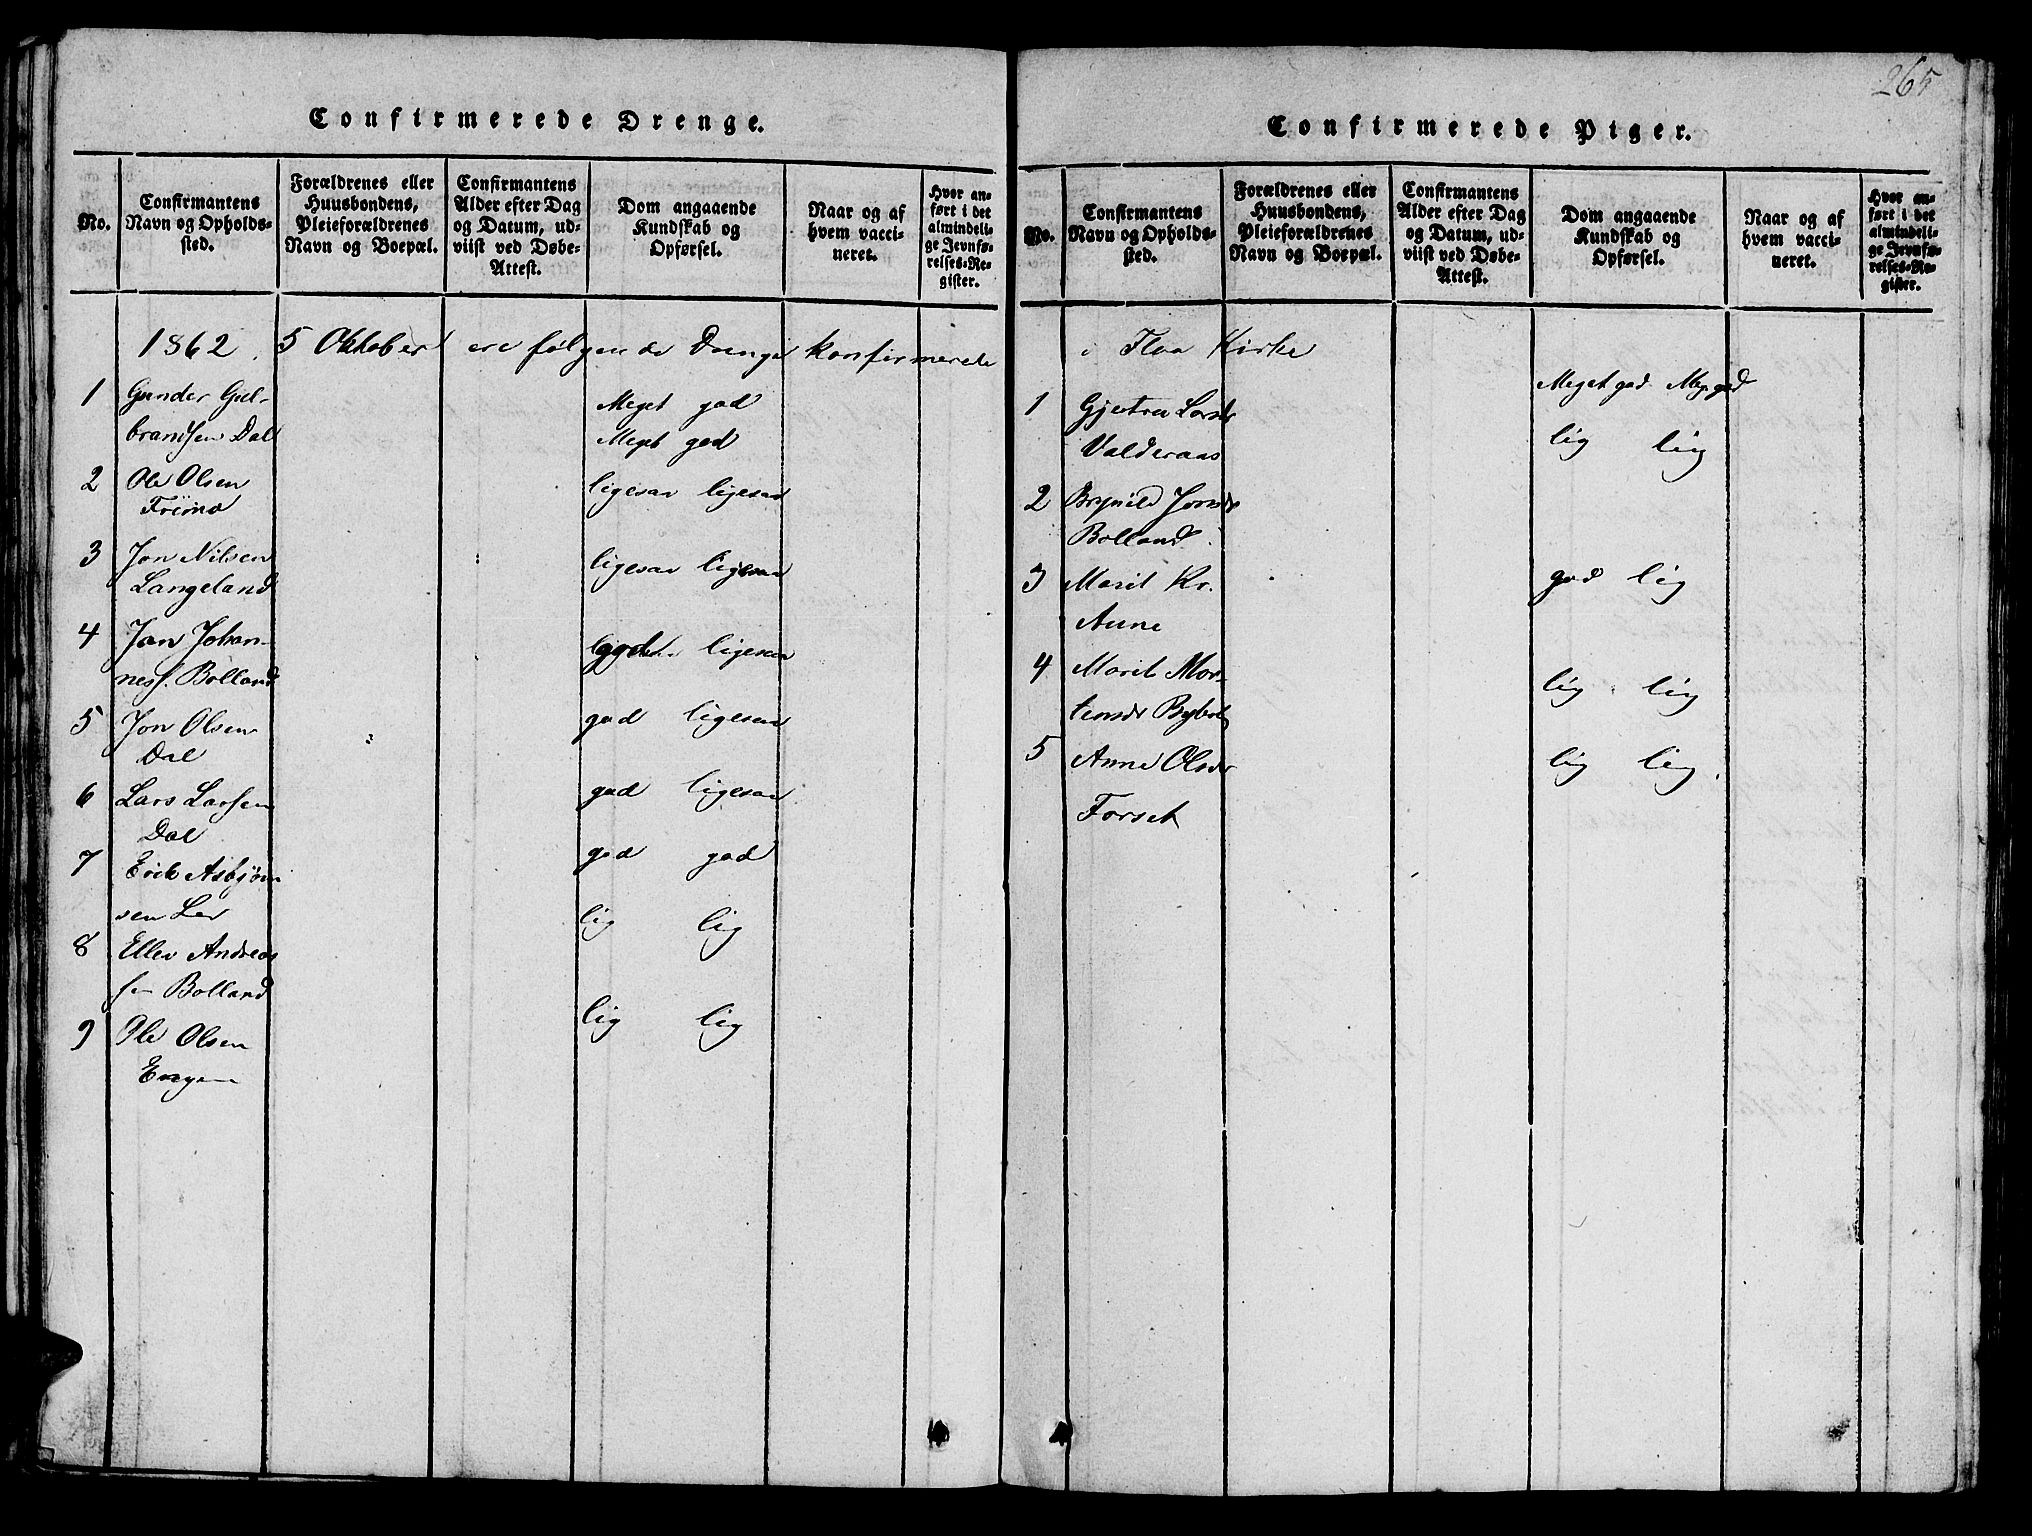 265
Confirmerede Drenge.
No.
Confirmantens
Navn og Opholds-
sted.
Forældrenes eller
Huusbondens,
Pleieforældrenes
Navn og Boepæl.
Confirmantens
Alder efter Dag
og Datum, ud-
viist ved Døbe-
Attest.
Dom angaaende
Kundskab og
Opførsel.
Naar og af
hvem vacci-
neret.
Hvor an-
ført i det
almindeli-
ge Jevnfø-
relses-Re-
gister.
1862. 5 Oktober ere følgende Drenge konfirmerede
1 Gunder Gul- Meget god
brandsen Dal Meget god
2 Ole Olsen ligesaa ligesaa
Fremo
3 Jon Nilsen ligesaa ligesaa
Langeland
4 Jon Johan- god ligesaa
ness. Bolland
5 Jon Olsen god ligesaa
Dal
6 Lars Larsen god ligesaa
Dal
7 Erik Asbjørn god god
sen Ler
8 Ellev Andreas lig lig
sen Bolland
9 Ole Olsen lig lig
Engen
Confirmerede Piger.
No.
Confirmantens
Navn og Opholds-
sted.
Forældrenes eller
Huusbondens,
Pleieforældrenes
Navn og Boepæl.
Confirmantens
Alder efter Dag
og Datum, ud-
viist ved Døbe-
Attest.
Dom angaaende
Kundskab og
Opførsel.
Naar og af
hvem vacci-
neret.
Hvor an-
ført i det
almindeli-
ge Jevnfø-
relses-Re-
gister.
i Flaa Kirke
Meget god Meg. god
1 Gjertru Larsdr
Valderaas lig lig
2 Brynild Jonsdr
Bolland
3 Marit Kr. god lig
Aune
4 Marit Mor- lig lig
tensdr
5 Anne Olsdr lig lig
Forset